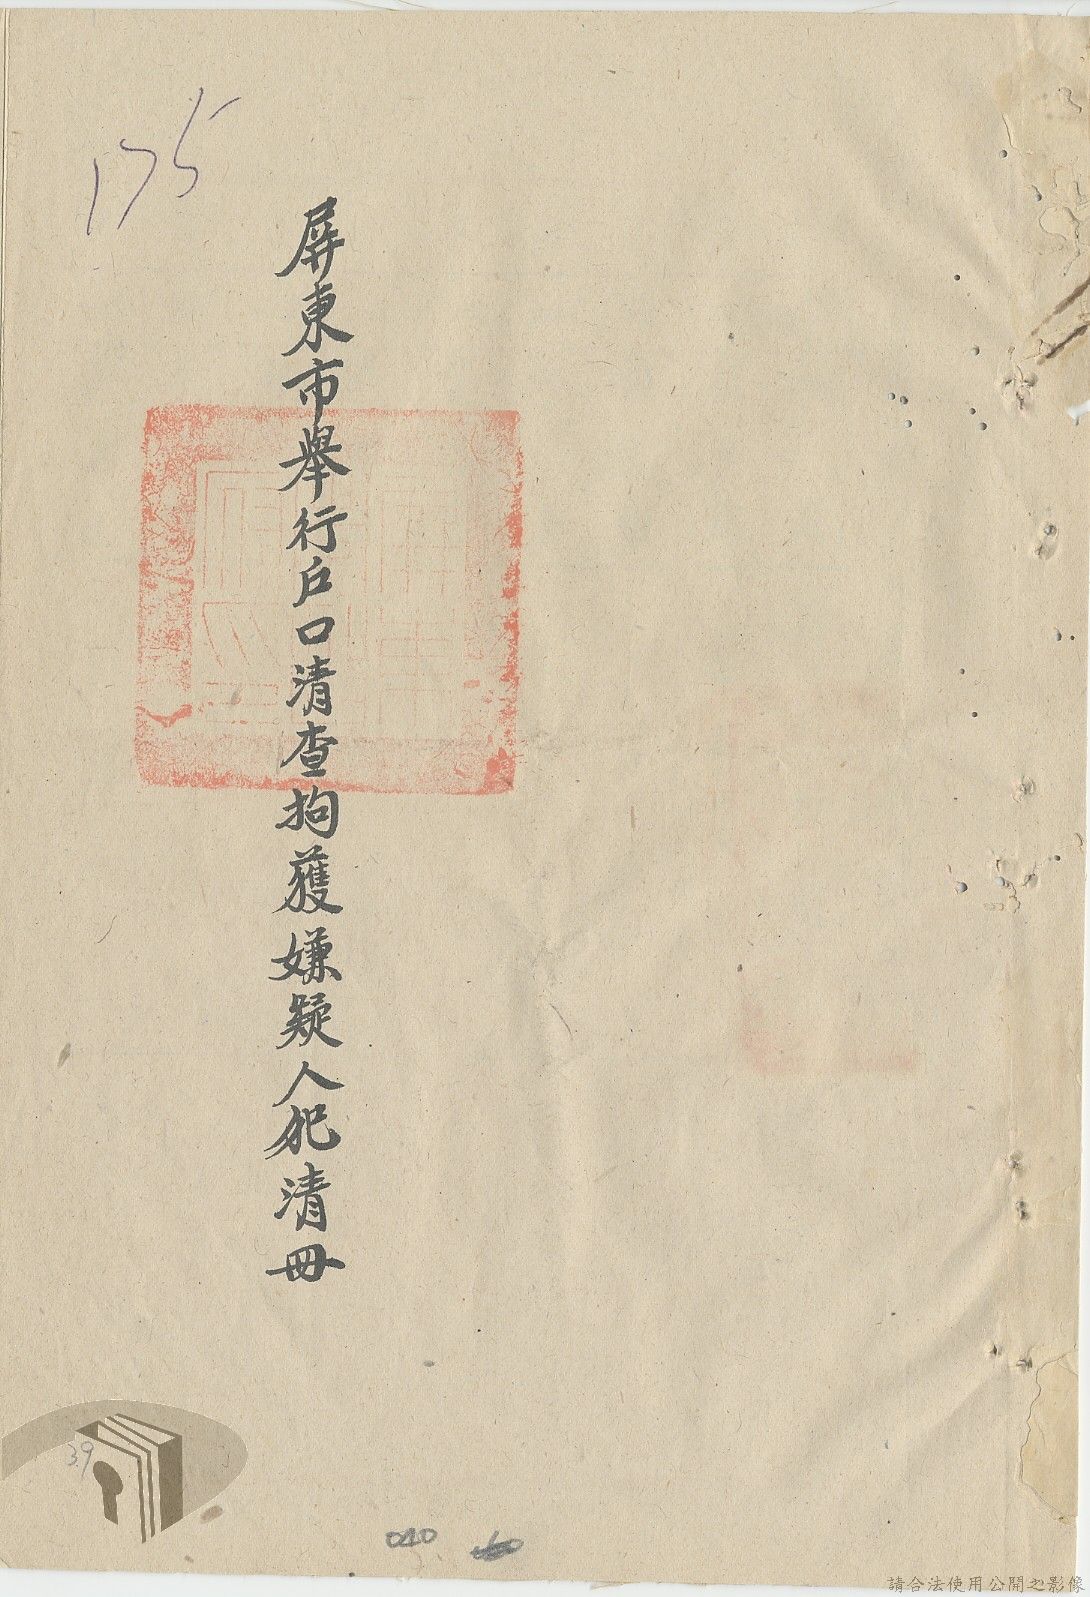 175
屏東市舉行戶口清查拘獲嫌疑人犯清冊
39
040
請合法使用公開之影像